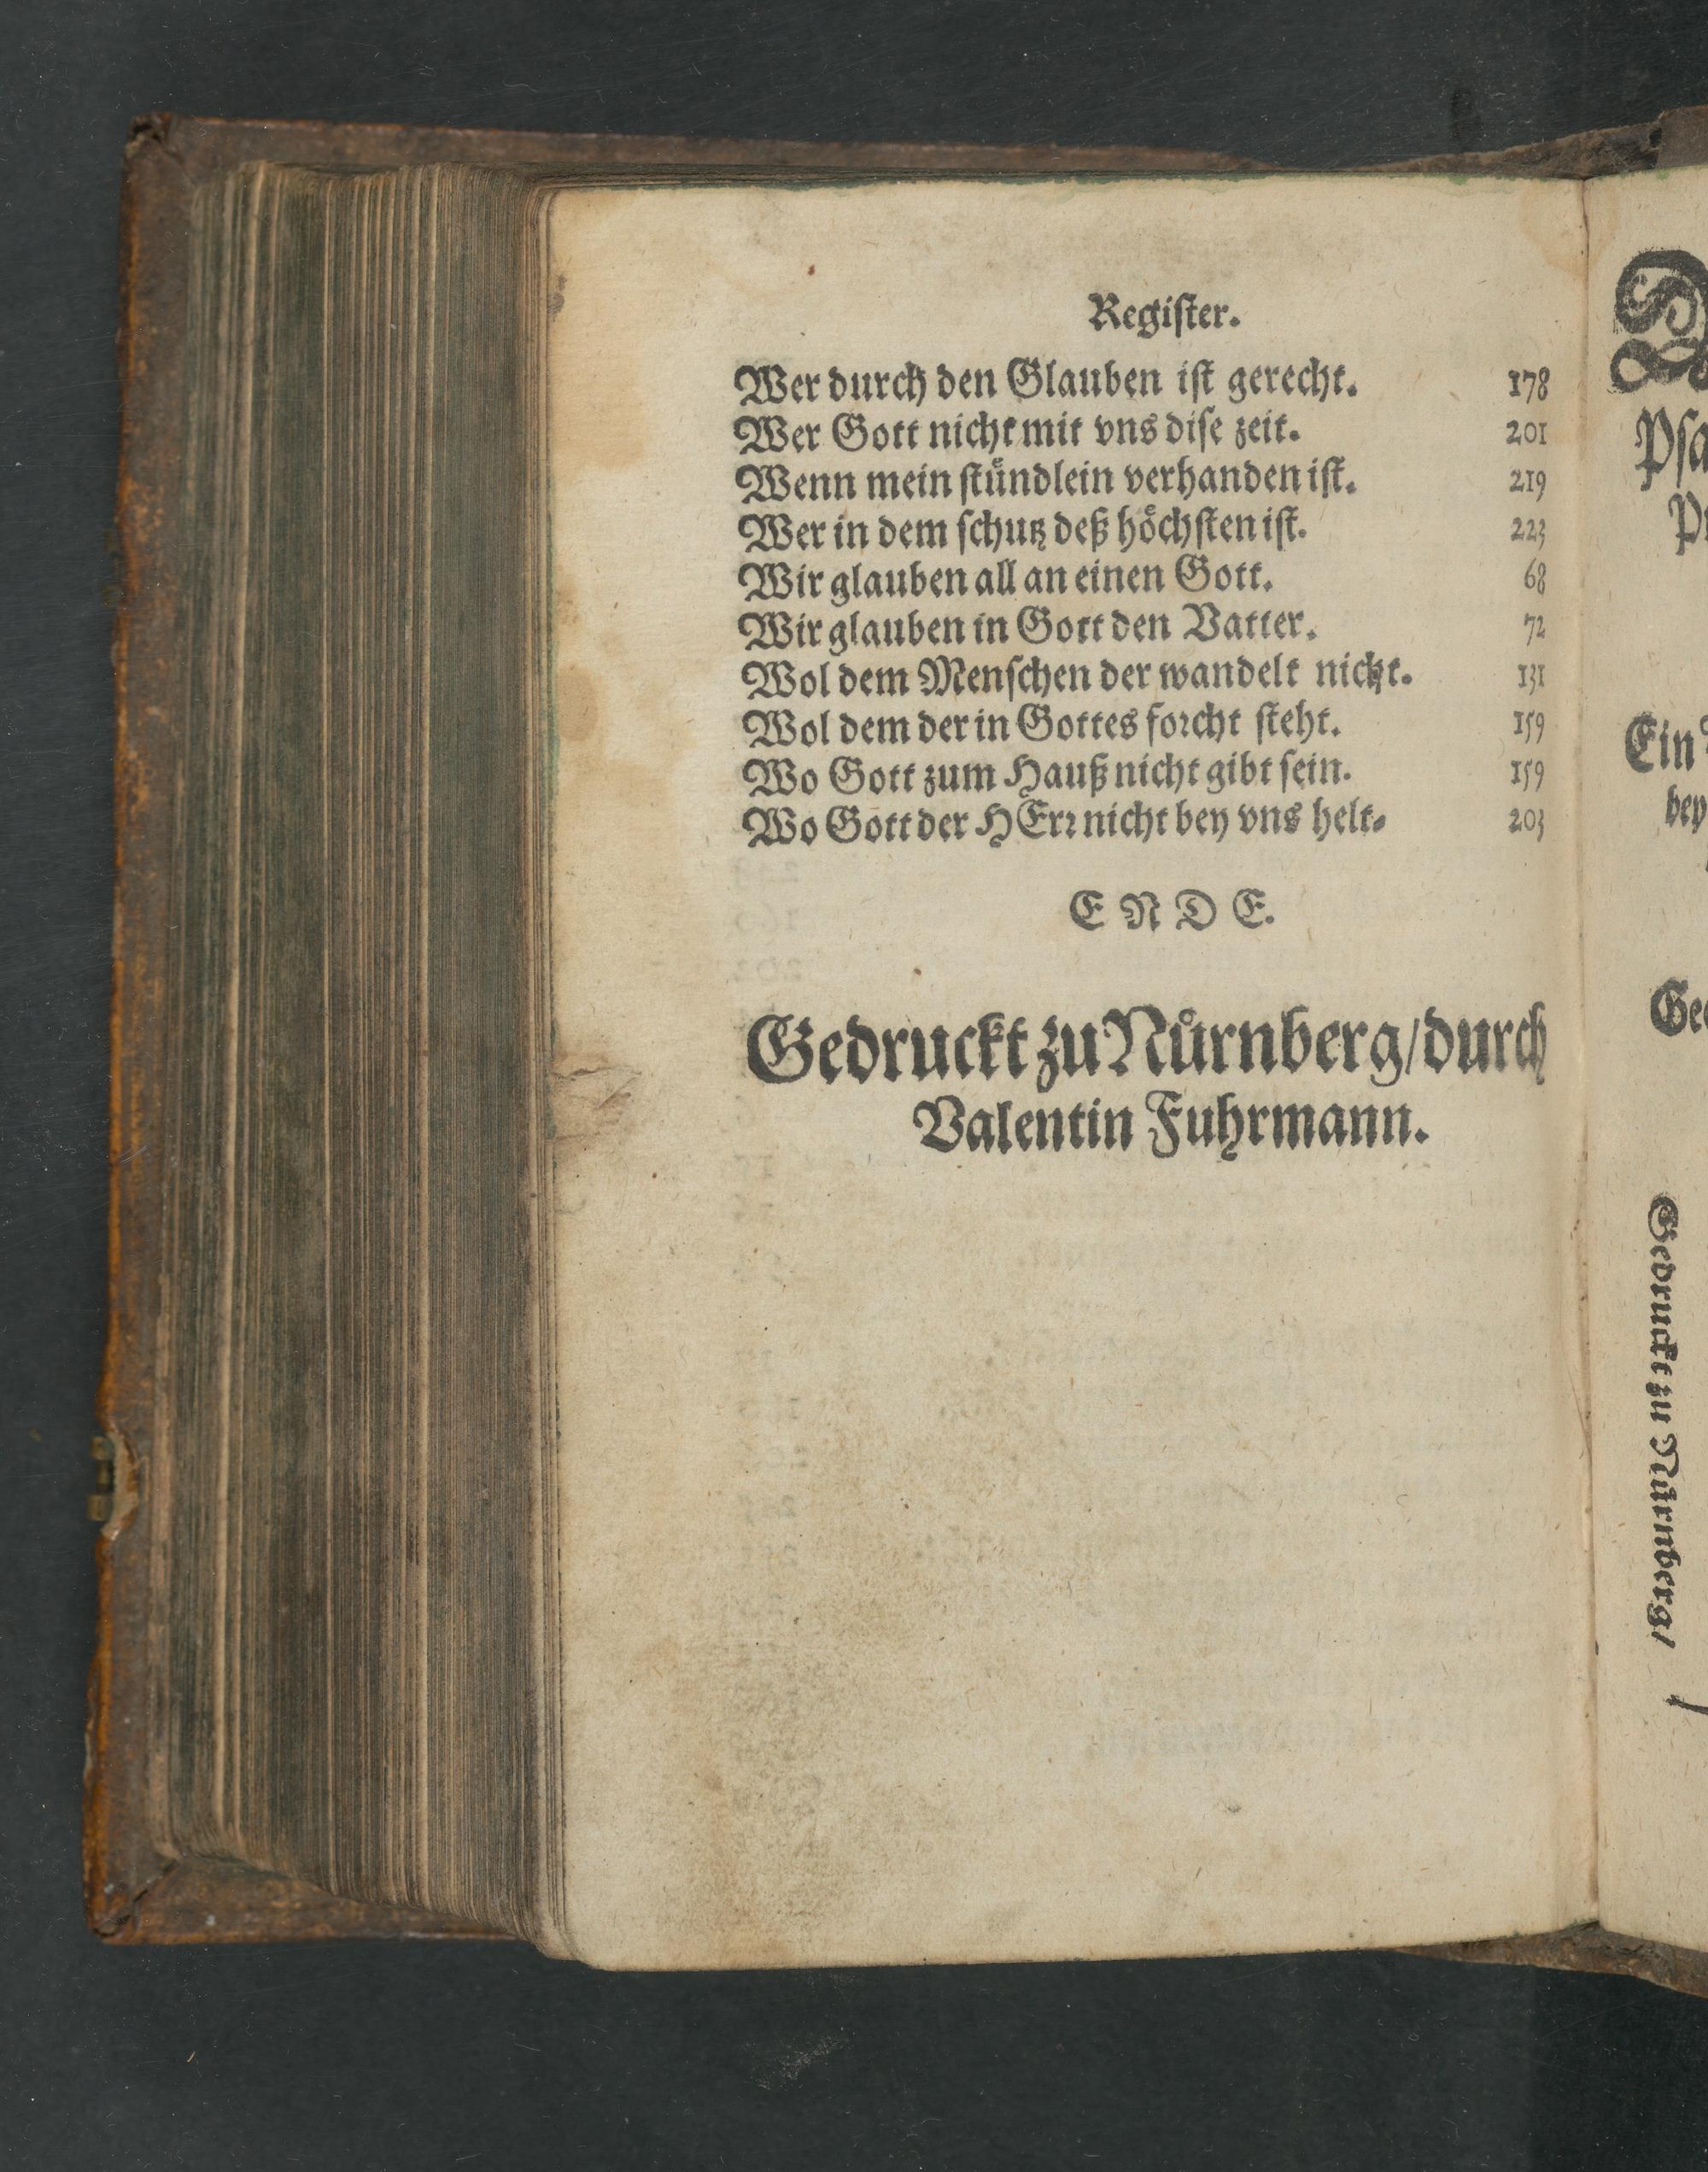 Regiſter.
Wer durch den Glauben iſt gerecht. 178
Wer Gott nicht mit vns diſe zeit. 201
Wenn mein ſtündlein verhanden iſt. 219
Wer in dem ſchutz deß höchſten iſt. 223
Wir glauben all an einen Gott. 68
Wir glauben in Gott den Vatter. 72
Wol dem Menſchen der wandelt nicht. 131
Wol dem der in Gottes forcht ſteht. 159
Wo Gott zum Hauß nicht gibt ſein. 159
Wo Gott der HErr nicht bey vns helt. 203
E N D E.
Gedruckt zu Nürnberg/durch
Valentin Fuhrmann.
Ein
bey
Gedruckt zu Nürnberg/